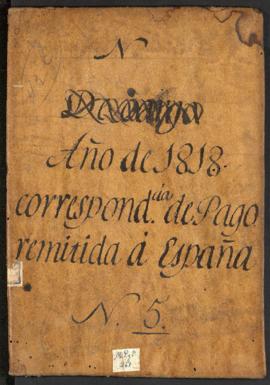 N
Año de 1818
correspond.cia de Pago
remitida á España
N. 5.